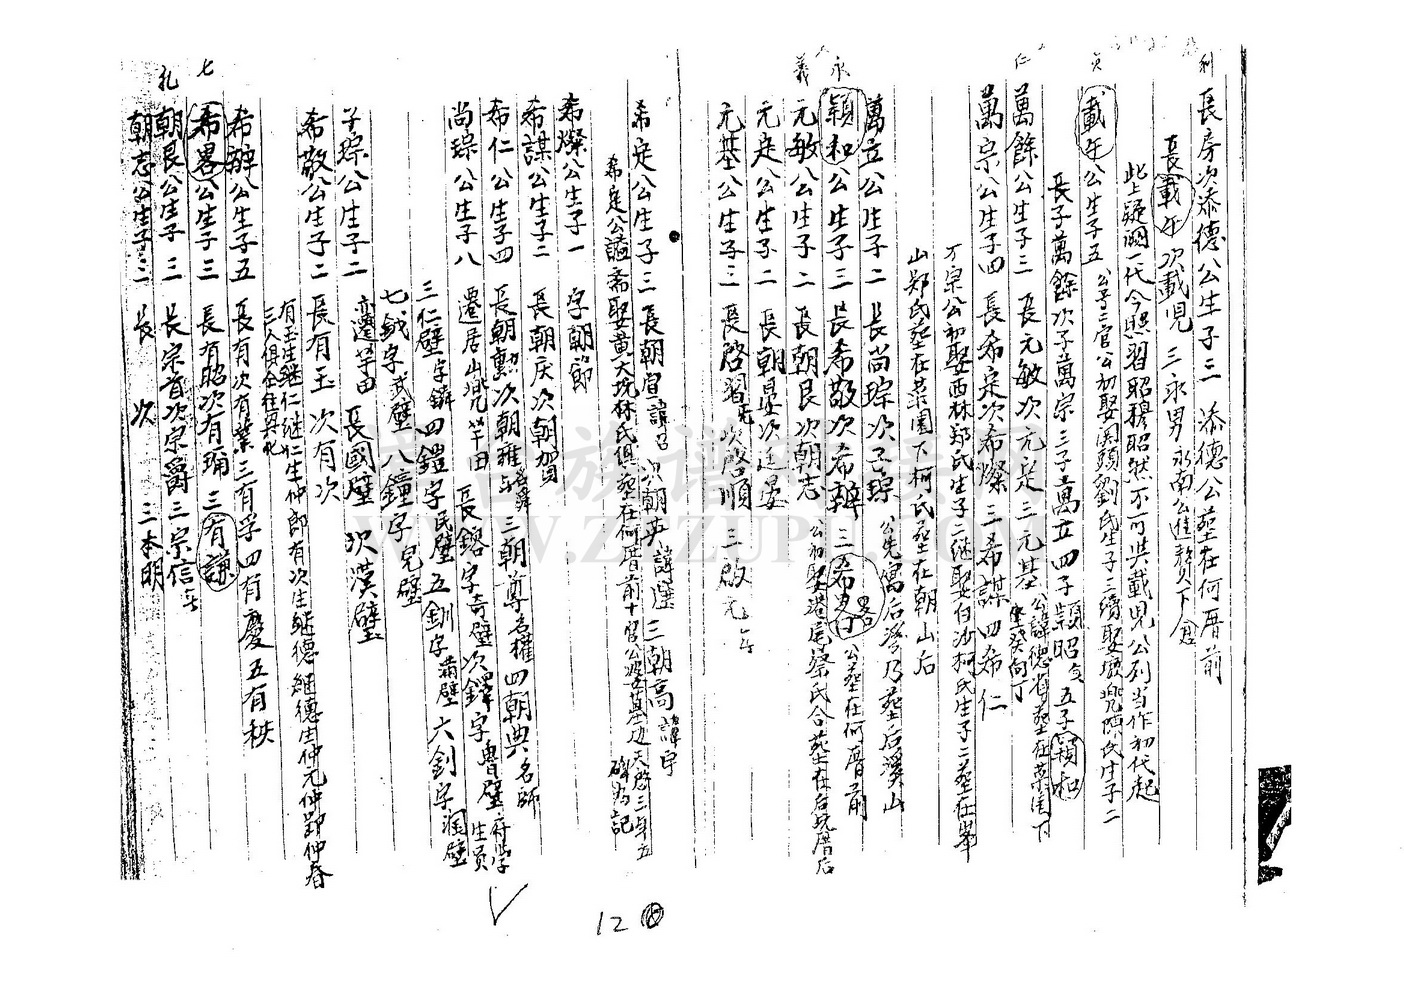 利 長房次添德公生子三 添德公塟在何厝前
長載午 次載児 三永男 永南公進贅下
此上疑漏一代今照習昭穆昭然不可与載児公列当作初代起
載午公生子五 公子三官公初娶園頭劉氏生子三續娶墩兜陳氏生子二
長子萬餘次子萬宗三子萬立四子頴昭 五子頴和
仁 萬餘公生子三 長元敏次元定三元基 公諱德省塟在菜園下 坐癸向丁
萬宗公生子四 長希定次希燦三希謀四希仁
万宗公初娶西林郑氏生子二继娶白沙柯氏生子二塟在峯
山郑氏塟在菜園下柯氏塟在朝山后
萬立公生子二 長尚琮次子琮 公先寓后溪乃塟后溪山
永 頴和公生子三 長希敬次希辤三希畧 公塟在何厝前
義 元敏公生子二 長朝艮次朝志 公初娶港尾蔡氏合塟在后坑厝后
元定公生子二 長朝晏次廷晏
元基公生子三 長啓習 次啓順 三啟元
希定公生子三 長朝官諱 次朝英諱 三朝高諱
希定公諡斋娶黄大坑林氏俱塟在何厝前十官公婆墓边天啓三年立碑为記
希燦公生子一 字朝節
希謀公生子二 長朝庆次朝加
希仁公生子四 長朝勲次朝雅 三朝尊名權四朝典名師
尚琮公生子八 遷居山兜竿田 長鎔字奇璧次鐸字魯璧府學生員
三仁璧字鏻四鎧字民璧五釧字蒲璧六釗字润璧
七鉞字武璧八鐘字兒璧
子琮公生子二 遷竿田 長國璧次漢璧
希敬公生子二 長有玉次有次
有玉生继仁继仁生仲郎有次生继德继德生仲元仲 仲春
三人俱全在興化
希辤公生子五 長有次有業三有孚四有慶五有秩
七 希畧公生子三 長有昭次有珊三有謙
礼 朝艮公生子三 長宗首次宗爵三宗信
朝志公生子三 長 次 三本明
12